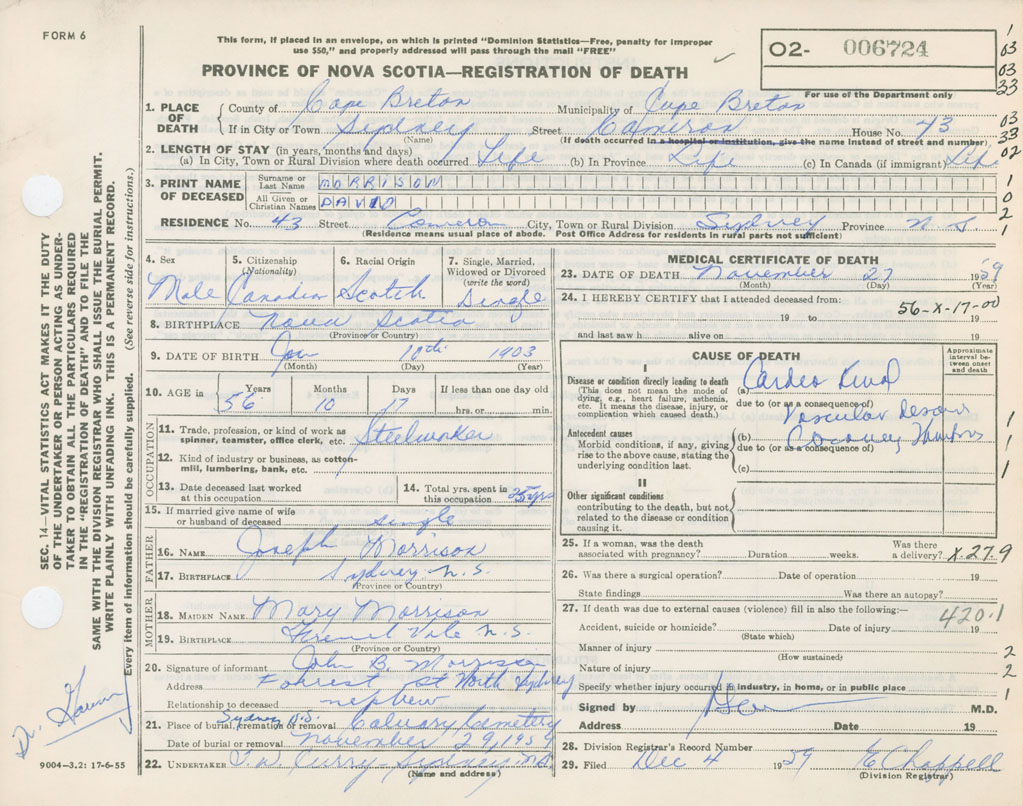 FORM 6
This form, if placed in an envelope, on which is printed "Dominion Statistics—Free, penalty for improper
use $50," and properly addressed will pass through the mail "FREE"
PROVINCE OF NOVA SCOTIA—REGISTRATION OF DEATH
O2- 006724
For use of the Department only
1. PLACE OF DEATH
County of Cape Breton Municipality of Cape Breton
If in City or Town Sydney Street Cameron House No. 43
(Name) (If death occurred in a hospital or institution, give the name instead of street and number)
2. LENGTH OF STAY (in years, months and days)
(a) In City, Town or Rural Division where death occurred Life (b) In Province Life (c) In Canada (if immigrant) Life
3. PRINT NAME OF DECEASED
Surname or Last Name MORRISON
All Given or Christian Names DAVID
RESIDENCE No. 43 Street Cameron City, Town or Rural Division Sydney Province N S.
(Residence means usual place of abode. Post Office Address for residents in rural parts not sufficient)
4. Sex 5. Citizenship (Nationality) 6. Racial Origin 7. Single, Married, Widowed or Divorced (write the word)
Male Canadian Scotch Single
8. BIRTHPLACE Nova Scotia
(Province or Country)
9. DATE OF BIRTH Jan 10th 1903
(Month) (Day) (Year)
10. AGE in Years Months Days If less than one day old
56 10 17 hrs. or min.
OCCUPATION
11. Trade, profession, or kind of work as spinner, teamster, office clerk, etc. Steelworker
12. Kind of industry or business, as cotton-mill, lumbering, bank, etc.
13. Date deceased last worked at this occupation
14. Total yrs. spent in this occupation 25 yrs
15. If married give name of wife or husband of deceased single
FATHER
16. NAME Joseph Morrison
17. BIRTHPLACE Sydney N.S.
(Province or Country)
MOTHER
18. MAIDEN NAME Mary Morrison
19. BIRTHPLACE French Vale N.S.
(Province or Country)
20. Signature of informant John B. Morrison
Address Forrest St North Sydney
Relationship to deceased nephew
21. Place of burial, cremation or removal Sydney N.S. Calvary Cemetery
Date of burial or removal November 29, 1959
22. UNDERTAKER T.W. Curry - Sydney N.S.
(Name and address)
MEDICAL CERTIFICATE OF DEATH
23. DATE OF DEATH November 27 1959
(Month) (Day) (Year)
24. I HEREBY CERTIFY that I attended deceased from:
56-X-17-00
19 to 19
and last saw h alive on 19
CAUSE OF DEATH
Approximate interval between onset and death
I
Disease or condition directly leading to death (a) Cardio Renal
(This does not mean the mode of dying, e.g., heart failure, asthenia, etc. It means the disease, injury, or complication which caused death.)
due to (or as a consequence of)
Vascular
Antecedent causes (b) Coronary
Morbid conditions, if any, giving rise to the above cause, stating the underlying condition last.
due to (or as a consequence of)
(c)
II
Other significant conditions
contributing to the death, but not related to the disease or condition causing it.
25. If a woman, was the death associated with pregnancy? Duration weeks. Was there a delivery? X-27.9
26. Was there a surgical operation? Date of operation 19
State findings Was there an autopsy?
27. If death was due to external causes (violence) fill in also the following:—
420.1
Accident, suicide or homicide? Date of injury 19
(State which)
Manner of injury
(How sustained)
Nature of injury
Specify whether injury occurred in industry, in home, or in public place
Signed by M.D.
Address Date 19
28. Division Registrar's Record Number
29. Filed Dec 4 1959 E Chappell
(Division Registrar)
SEC. 14—VITAL STATISTICS ACT MAKES IT THE DUTY
OF THE UNDERTAKER OR PERSON ACTING AS UNDER-
TAKER TO OBTAIN ALL THE PARTICULARS REQUIRED
IN THE "REGISTRATION OF DEATH" AND TO FILE THE
SAME WITH THE DIVISION REGISTRAR WHO SHALL ISSUE THE BURIAL PERMIT.
WRITE PLAINLY WITH UNFADING INK. THIS IS A PERMANENT RECORD.
Every item of information should be carefully supplied. (See reverse side for instructions.)
Dr.
9004—3.2: 17-6-55
1
03
03
33
03
33
02
1
0
2
1
1
1
1
2
2
1